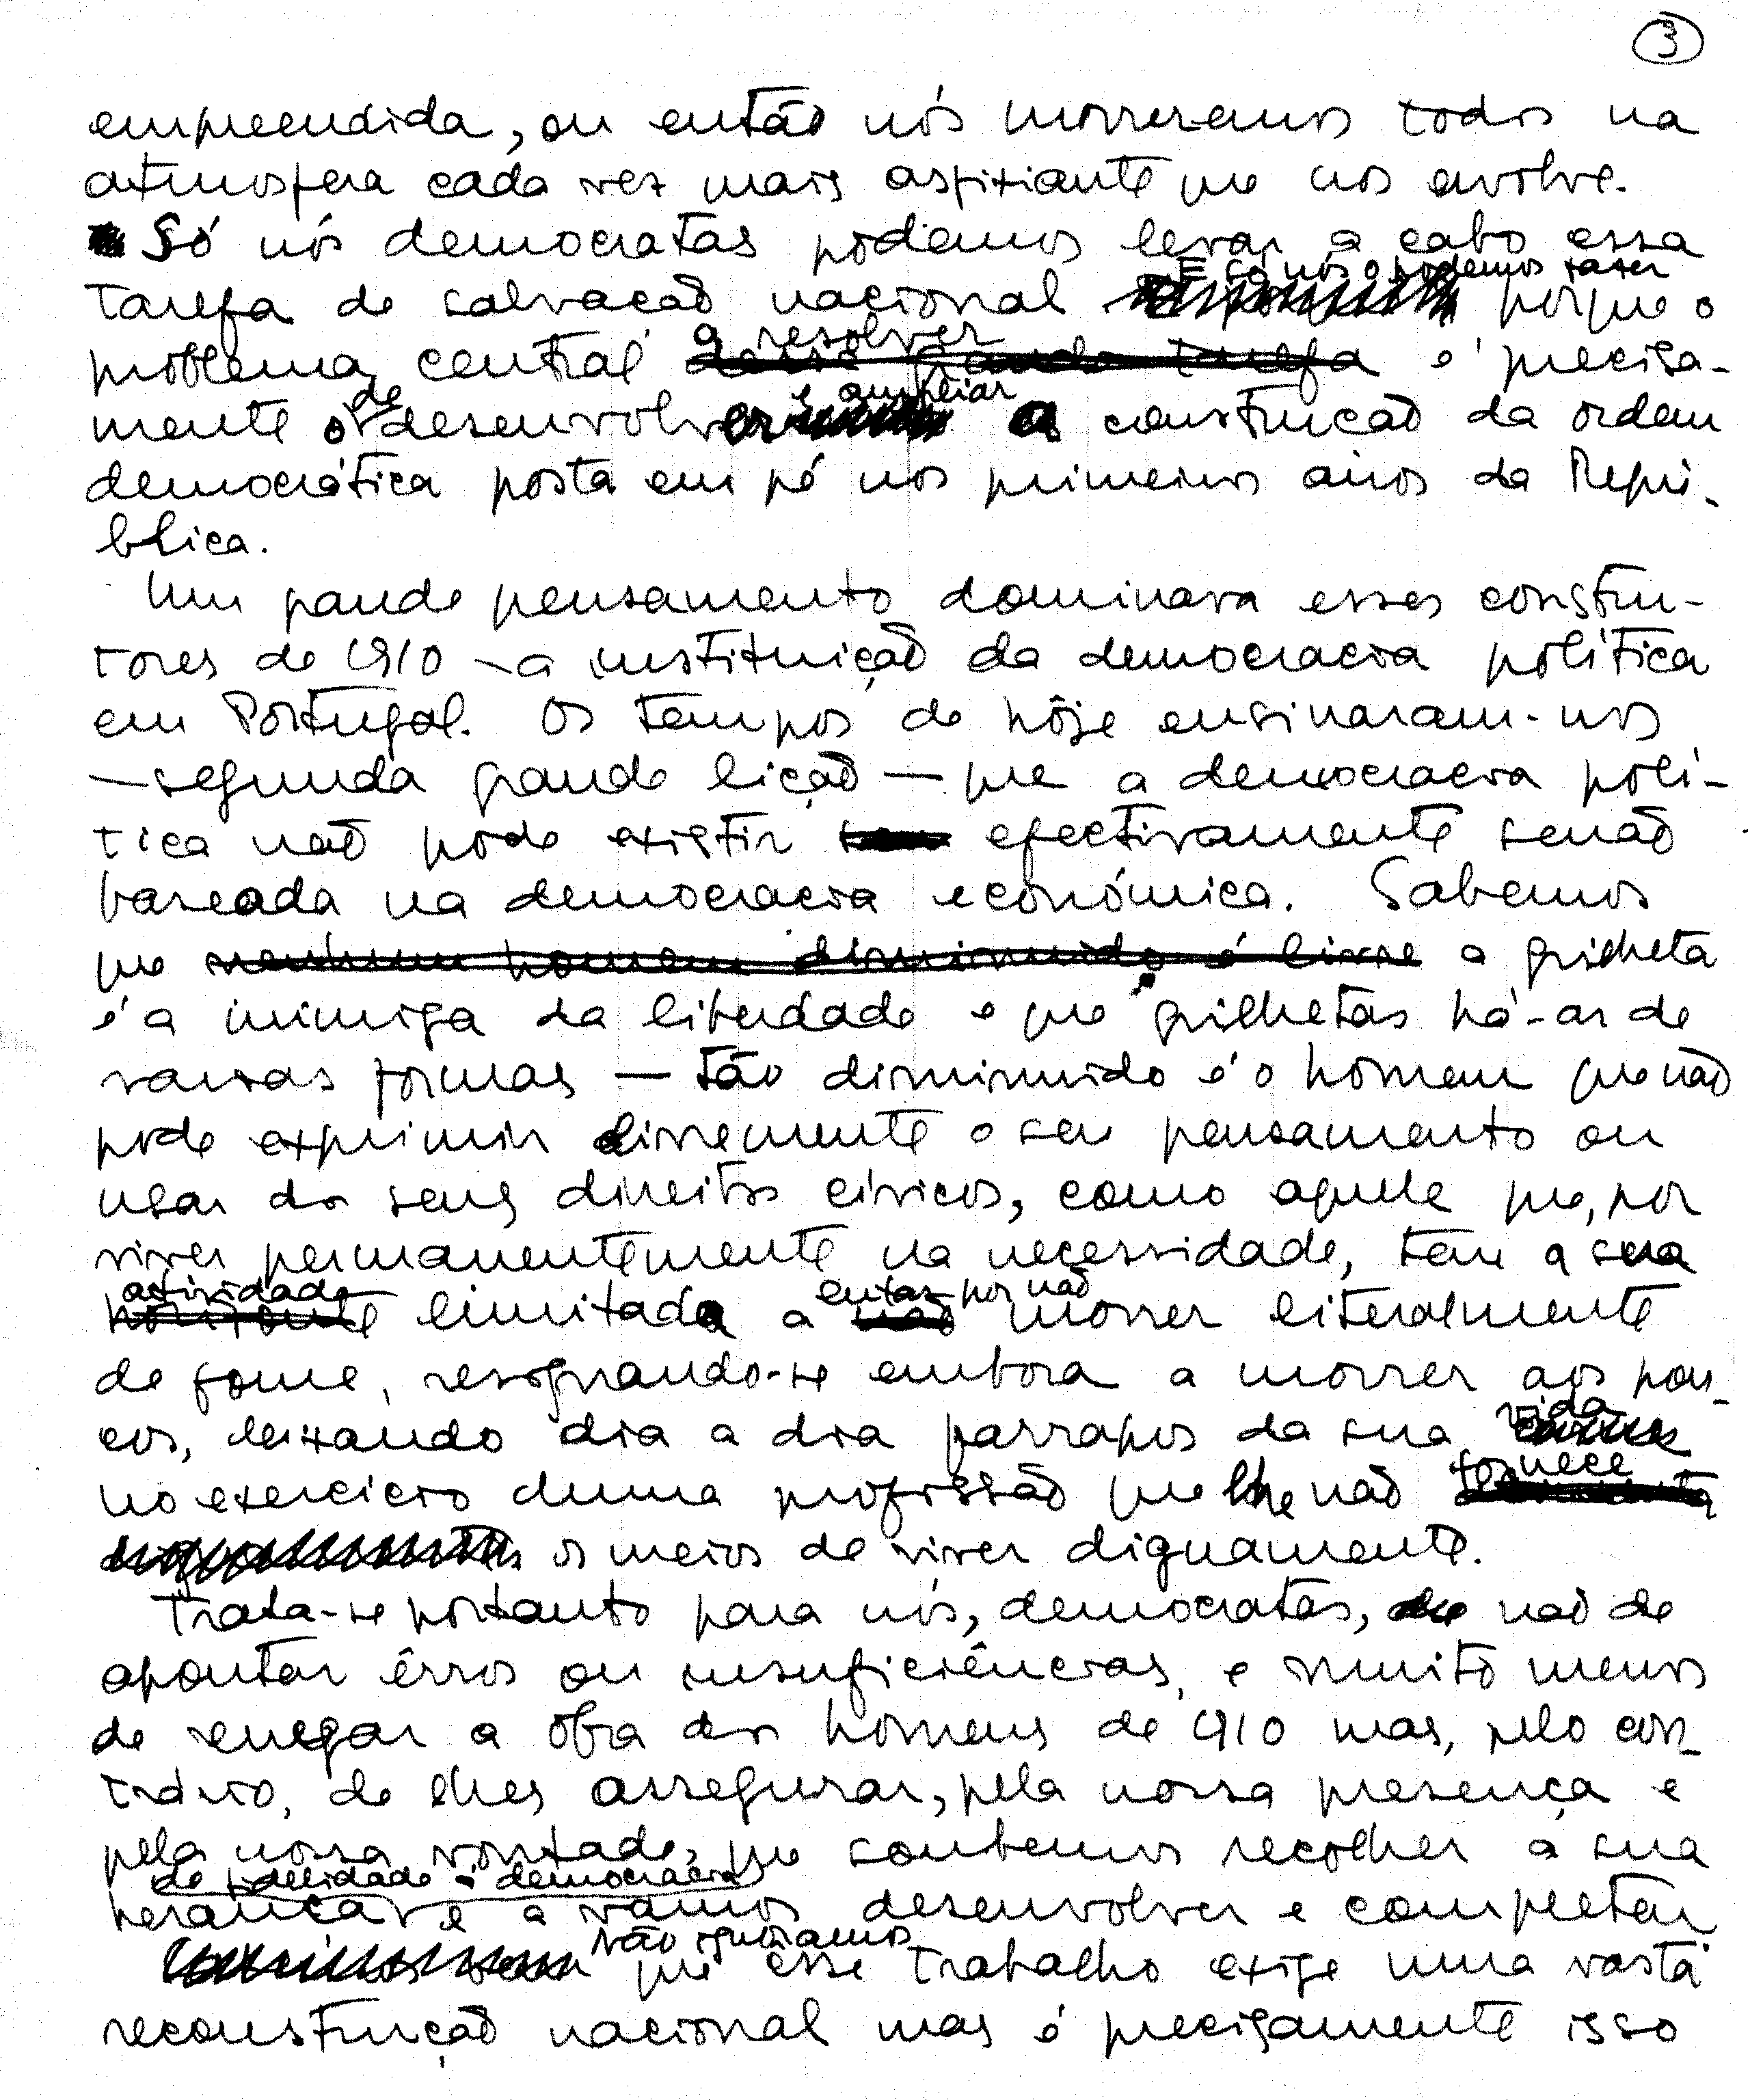 3
empreendida, ou então nós morreremos todos na
atmosfera cada vez mais asfixiante que nos envolve.
Só nós democratas podemos levar a cabo essa
E só nós o podemos fazer
tarefa de salvação nacional porque o
a resolver
problema central dessa grande tarefa é precisa-
de e ampliar
mente o desenvolver a construcão da ordem
democrática posta em pé nos primeiros anos da Repú-
blica.
Um grande pensamento dominava esses constru-
tores de 1910 — a instituição da democracia política
em Portugal. Os tempos de hôje ensinaram-nos
— segunda grande lição — que a democracia polí-
tica não pode existir sem efectivamente senão
baseada na democracia económica. Sabemos
que nenhum homem diminuido é livre a grilheta
é a inimiga da liberdade e que grilhetas há-as de
varias formas — tão diminuido é o homem que não
pode exprimir livremente o seu pensamento ou
usar dos seus direitos cívicos, como aquele que, por
viver permanentemente na necessidade, tem a sua
actividade lutar por não
horizonte limitada a não morrer literalmente
de fome, resignando-se embora a morrer aos pou-
cos, deixando dia a dia farrapos da sua vida
carne
fornece
no exercício duma profissão que lhe não
os meios de viver dignamente.
Trata-se portanto para nós, democratas, não de
apontar êrros ou insuficiências, e muito menos
de renegar a obra dos homens de 1910 mas, pelo con-
trário, de lhes assegurar, pela nossa presença e
pela nossa vontade, que soubemos recolher a sua
de fidelidade à democracia
herança e a vamos desenvolver e completar
não ignoramos
que êsse trabalho exige uma vasta
reconstrução nacional mas é precisamente isso